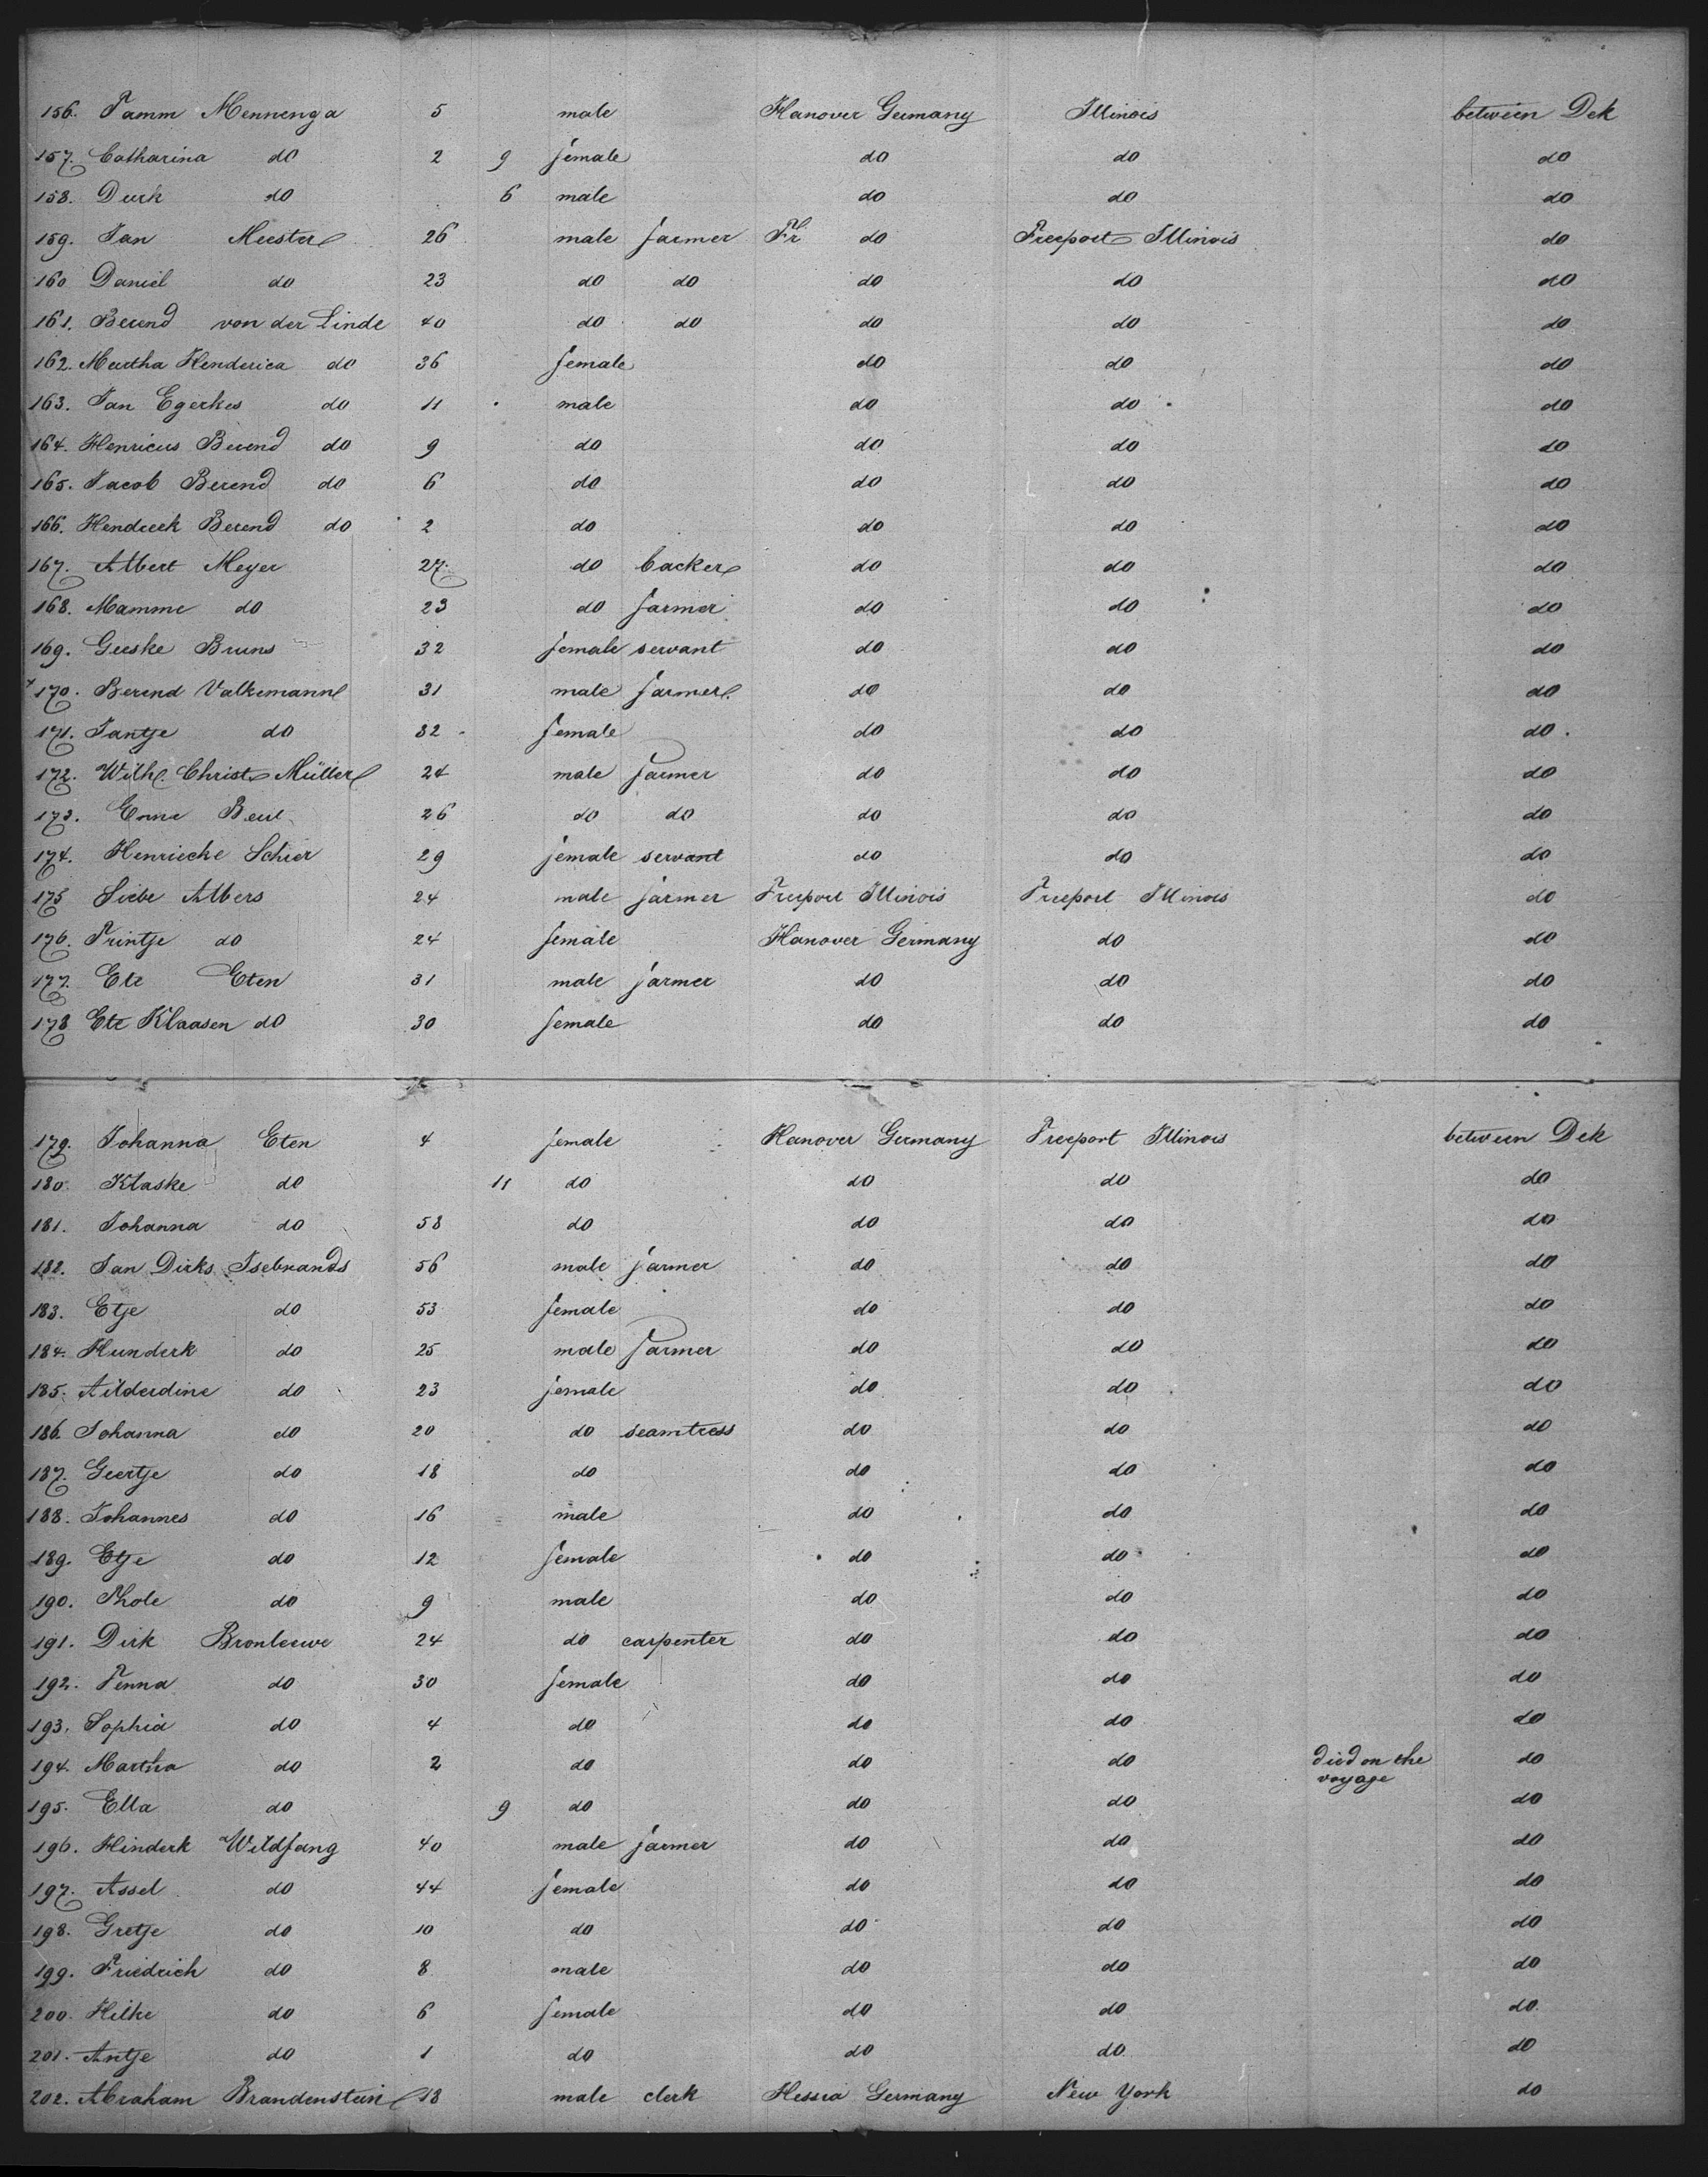 156. Tamm Mennenga 5 male Hanover Germany Illinois between Dek
157. Catharina do 2 9 female do do do
158. Durk do 6 male do do do
159. Jan Meester 26 male farmer do Freeport Illinois do
160 Daniel do 23 do do do do do
161. Berend von der Linde 40 do do do do do
162. Martha Henderica do 36 female do do do
163. Jan Egerkes do 11 male do do do
164. Henricus Berend do 9 do do do do
165. Jacob Berend do 6 do do do do
166. Hendreek Berend do 2 do do do do
167. Albert Meyer 27 do backer do do do
168. Mamme do 23 do farmer do do do
169. Geeske Bruns 32 female servant do do do
170. Berend Valkemann 31 male farmer do do do
171. Jantje do 32 female do do do
172. Wilh. Christ. Müller 24 male farmer do do do
173. Enne Beul 26 do do do do do
174. Henriecke Schier 29 female servant do do do
175 Siebe Albers 24 male farmer Freeport Illinois Freeport Illinois do
176. Trintje do 24 female Hanover Germany do do
177. Ete Eten 31 male farmer do do do
178 Ete Klaasen do 30 female do do do
179. Johanna Eten 4 female Hanover Germany Freeport Illinois between Dek
180. Klaske do 11 do do do do
181. Johanna do 58 do do do do
182. Jan Dirks Isebrands 56 male farmer do do do
183. Etje do 53 female do do do
184. Hunderk do 25 male farmer do do do
185. Ailderdine do 23 female do do do
186. Johanna do 20 do seamtress do do do
187. Geertje do 18 do do do do
188. Johannes do 16 male do do do
189. Etje do 12 female do do do
190. Thole do 9 male do do do
191. Dirk Bronleewe 24 do carpenter do do do
192. Tenna do 30 female do do do
193. Sophia do 4 do do do do
194. Martha do 2 do do do died on the voyage do
195. Ella do 9 do do do do
196. Hinderk Wildfang 40 male farmer do do do
197. Assel do 44 female do do do
198. Gretje do 10 do do do do
199. Friedrich do 8 male do do do
200. Hilke do 6 female do do do
201. Antje do 1 do do do do
202. Abraham Brandenstein 18 male clerk Hessia Germany New York do